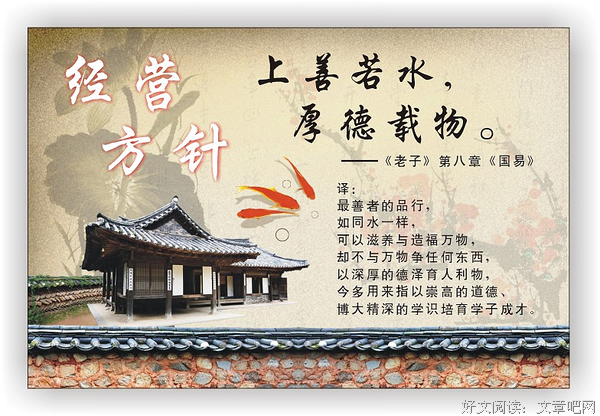 经营
方针
上善若水，
厚德载物。
——《老子》第八章《国易》
译：
最善者的品行，
如同水一样，
可以滋养与造福万物，
却不与万物争任何东西，
以深厚的德泽育人利物，
今多用来指以崇高的道德、
博大精深的学识培育学子成才。
好文阅读：文章吧网